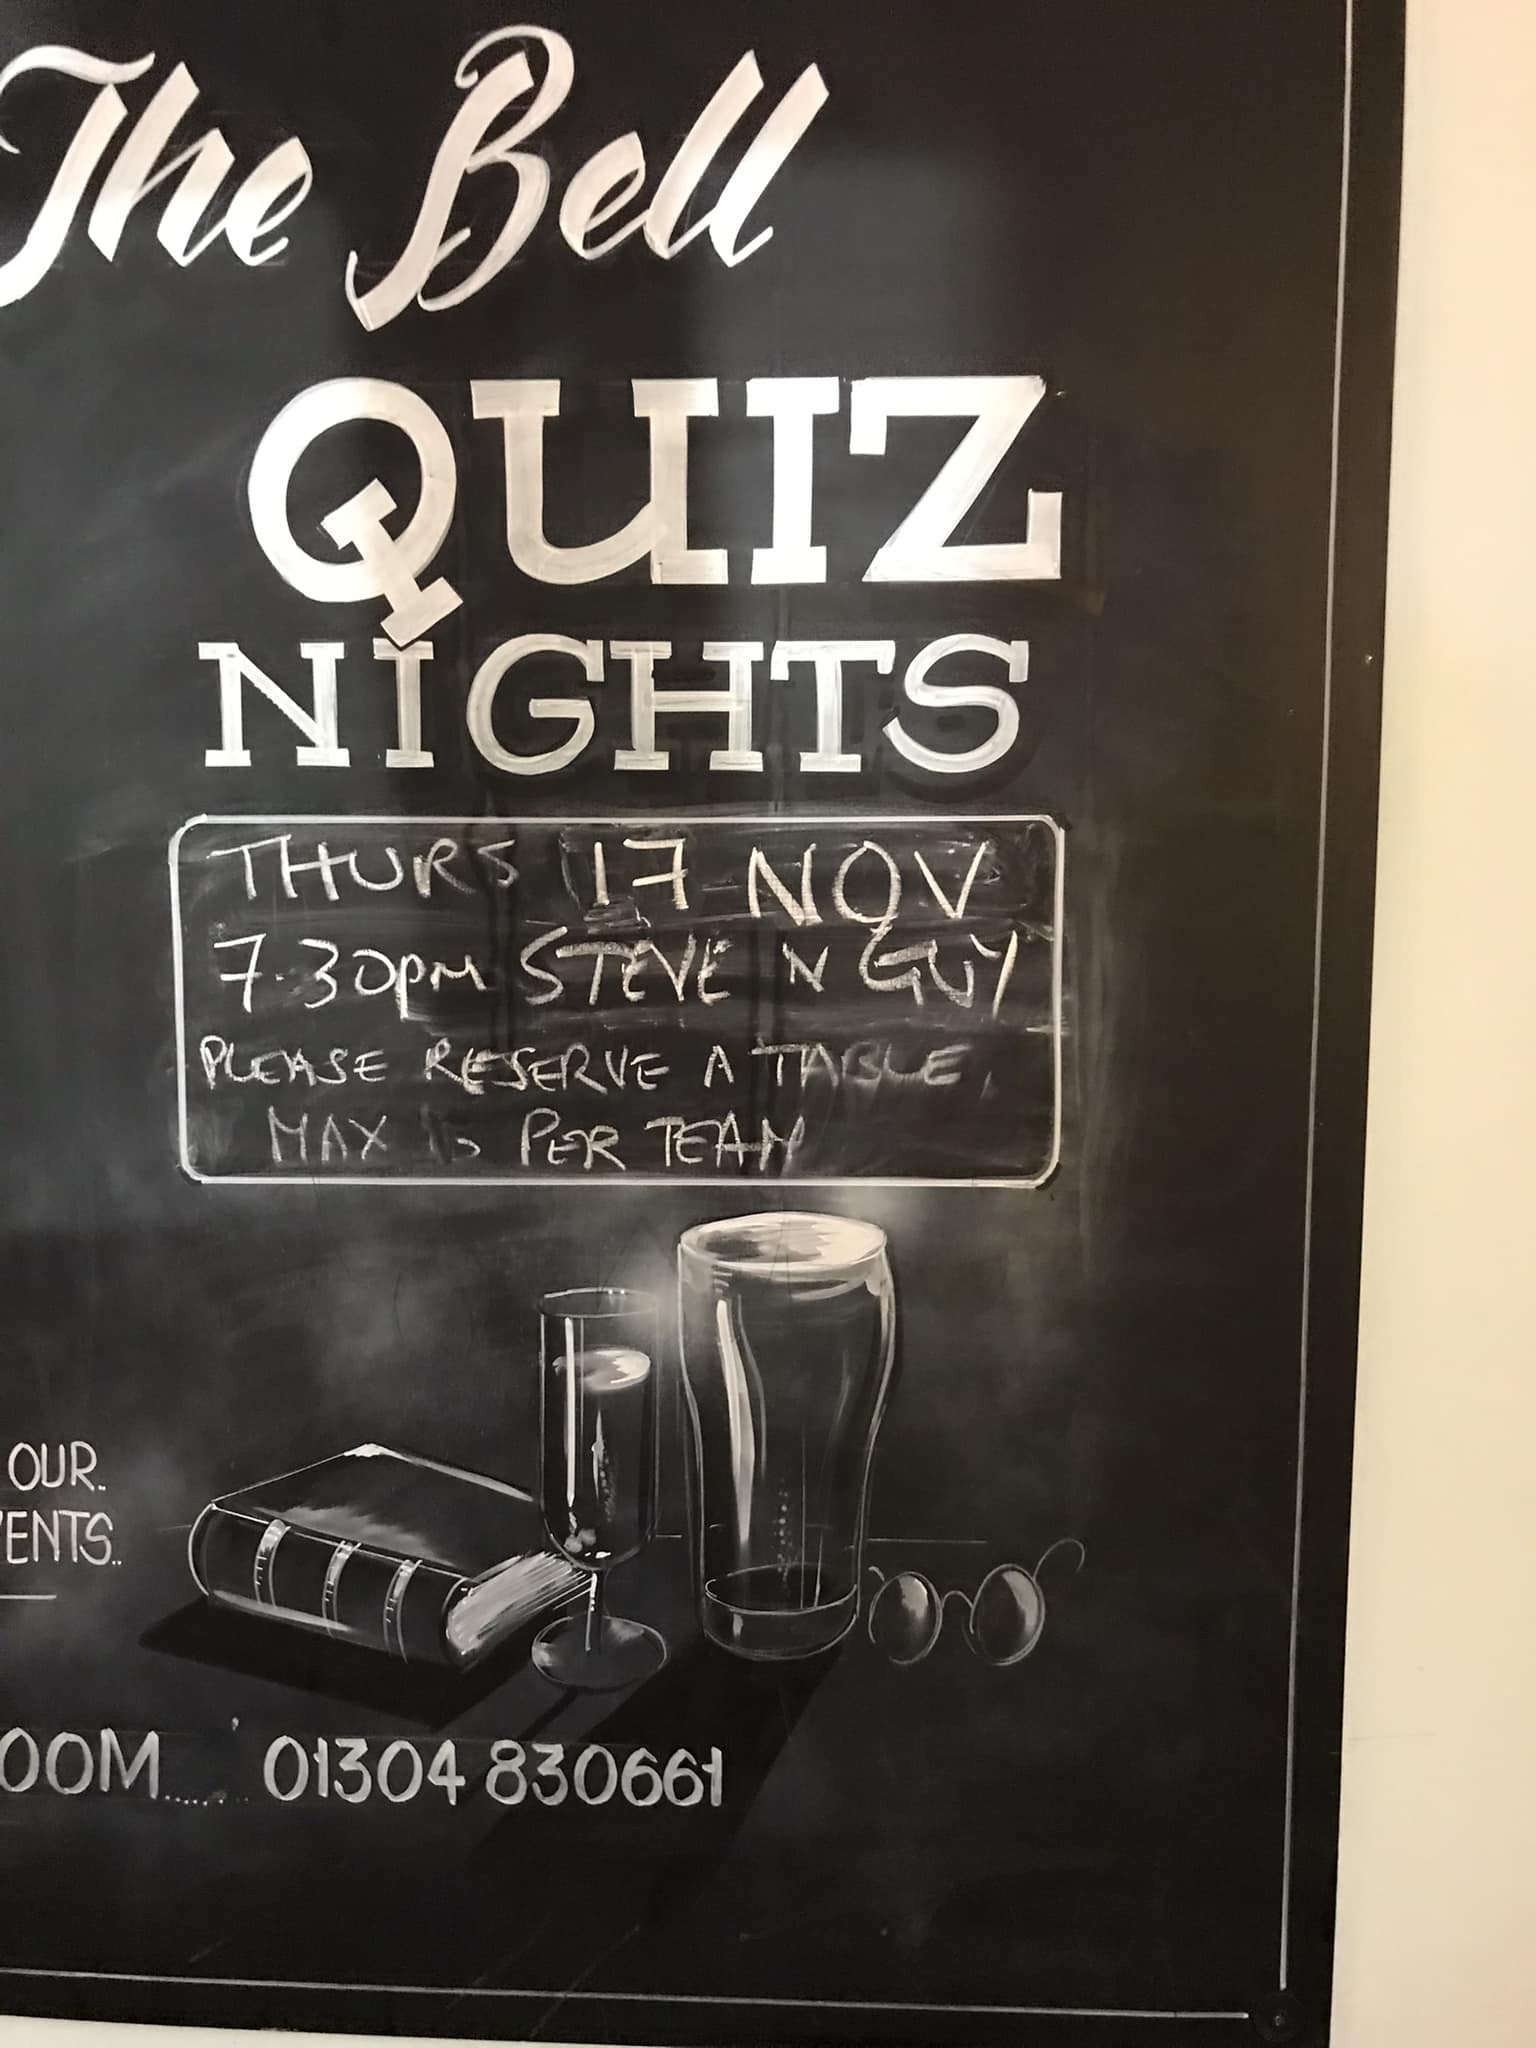 The Bell
QUIZ
NIGHTS
THURS 17 NOV
7.30PM STEVE N GUY
PLEASE RESERVE A TABLE,
MAX PER TEAM
OUR..
01304 830661